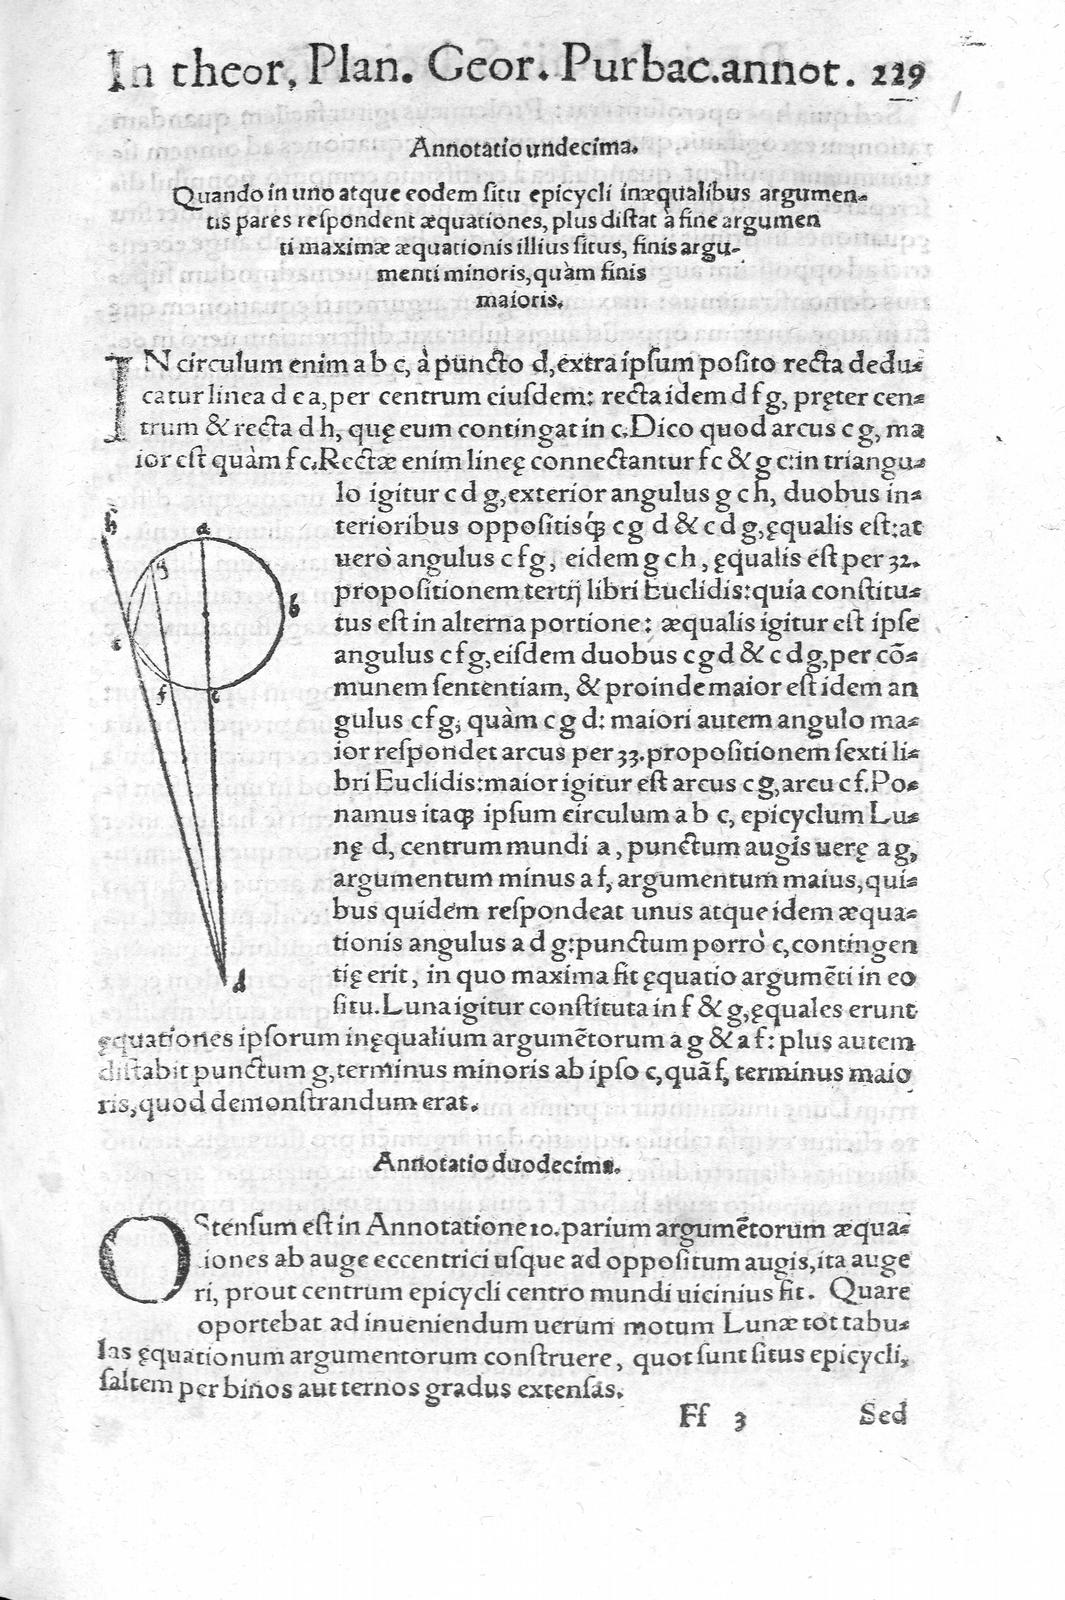 In theor, Plan. Geor. Purbac.annot. 229
Annotatio undecima.
Quando in uno atque eodem ſitu epicycli inæqualibus argumen-
tis pares reſpondent æquationes, plus diſtat à fine argumen
ti maximæ æquationis illius ſitus, finis argu-
menti minoris, quàm finis
maioris.
IN circulum enim a b c, à puncto d, extra ipſum poſito recta dedu-
catur linea d e a, per centrum eiuſdem: recta idem d f g, pręter cen-
trum & recta d h, quę eum contingat in c. Dico quod arcus c g, ma
ior eſt quàm f c. Rectæ enim lineę connectantur f c & g c: in triangu-
lo igitur c d g, exterior angulus g c h, duobus in-
terioribus oppoſitisq́ꝫ c g d & c d g, ęqualis eſt: at
uerò angulus c f g, eidem g c h, ęqualis eſt per 32.
propoſitionem tertij libri Euclidis: quia conſtitu-
tus eſt in alterna portione: æqualis igitur eſt ipſe
angulus c f g, eiſdem duobus c g d & c d g, per cō-
munem ſententiam, & proinde maior eſt idem an
gulus c f g, quàm c g d: maiori autem angulo ma-
ior reſpondet arcus per 33. propoſitionem ſexti li-
bri Euclidis: maior igitur eſt arcus c g, arcu c f. Po-
namus itaqꝫ ipſum circulum a b c, epicyclum Lu-
nę d, centrum mundi a, punctum augis uerę a g,
argumentum minus a f, argumentum maius, qui-
bus quidem reſpondeat unus atque idem æqua-
tionis angulus a d g: punctum porrò c, contingen
tię erit, in quo maxima fit ęquatio argumēti in eo
ſitu. Luna igitur conſtituta in f & g, ęquales erunt
ęquationes ipſorum inęqualium argumētorum a g & a f: plus autem
diſtabit punctum g, terminus minoris ab ipſo c, quā f, terminus maio
ris, quod demonſtrandum erat.
h
a
g
b
c
f
e
d
Annotatio duodecima.
OStenſum eſt in Annotatione 10. parium argumētorum æqua-
tiones ab auge eccentrici uſque ad oppoſitum augis, ita auge
ri, prout centrum epicycli centro mundi uicinius fit. Quare
oportebat ad inueniendum uerum motum Lunæ tot tabu-
las ęquationum argumentorum conſtruere, quot ſunt ſitus epicycli,
ſaltem per binos aut ternos gradus extenſas.
Ff 3 Sed